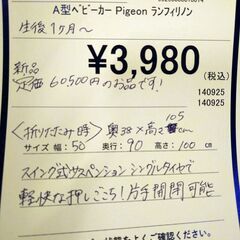 A型ベビーカー Pigeon ランフィリノン
生後1ヶ月〜
¥3,980
(税込)
新品
定価 60500円のお品です!
140925
140925
〈折りたたみ時〉 奥38×高さ105cm
サイズ 幅: 50 奥行: 90 高さ: 100 cm
スイング式サスペンション シングルタイヤで
軽快な押しごこち! 片手開閉可能
をよくご確認ください。